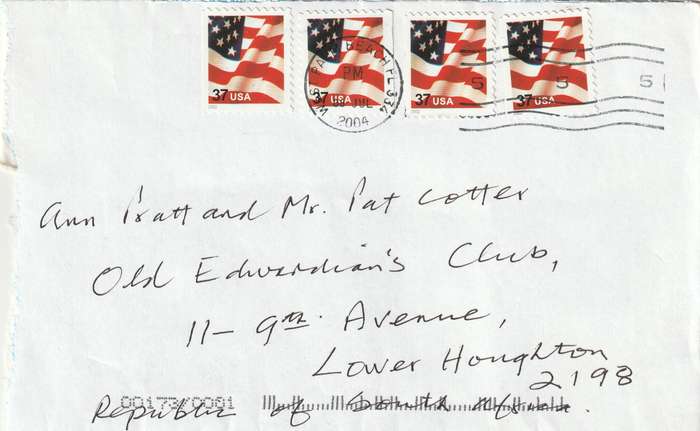 37 USA 37 USA 37 USA 37 USA
WEST PALM BEACH FL 334
PM
JUL
2004
5 5 5
Ann Pratt and Mr. Pat Cotter
Old Edwardian's Club,
11- 9th. Avenue,
Lower Houghton
2198
00173/0001
Republic of South Africa.